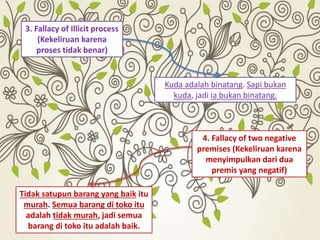 3. Fallacy of Illicit process
(Kekeliruan karena
proses tidak benar)
Kuda adalah binatang. Sapi bukan
kuda, jadi ia bukan binatang.
4. Fallacy of two negative
premises (Kekeliruan karena
menyimpulkan dari dua
premis yang negatif)
Tidak satupun barang yang baik itu
murah. Semua barang di toko itu
adalah tidak murah, jadi semua
barang di toko itu adalah baik.